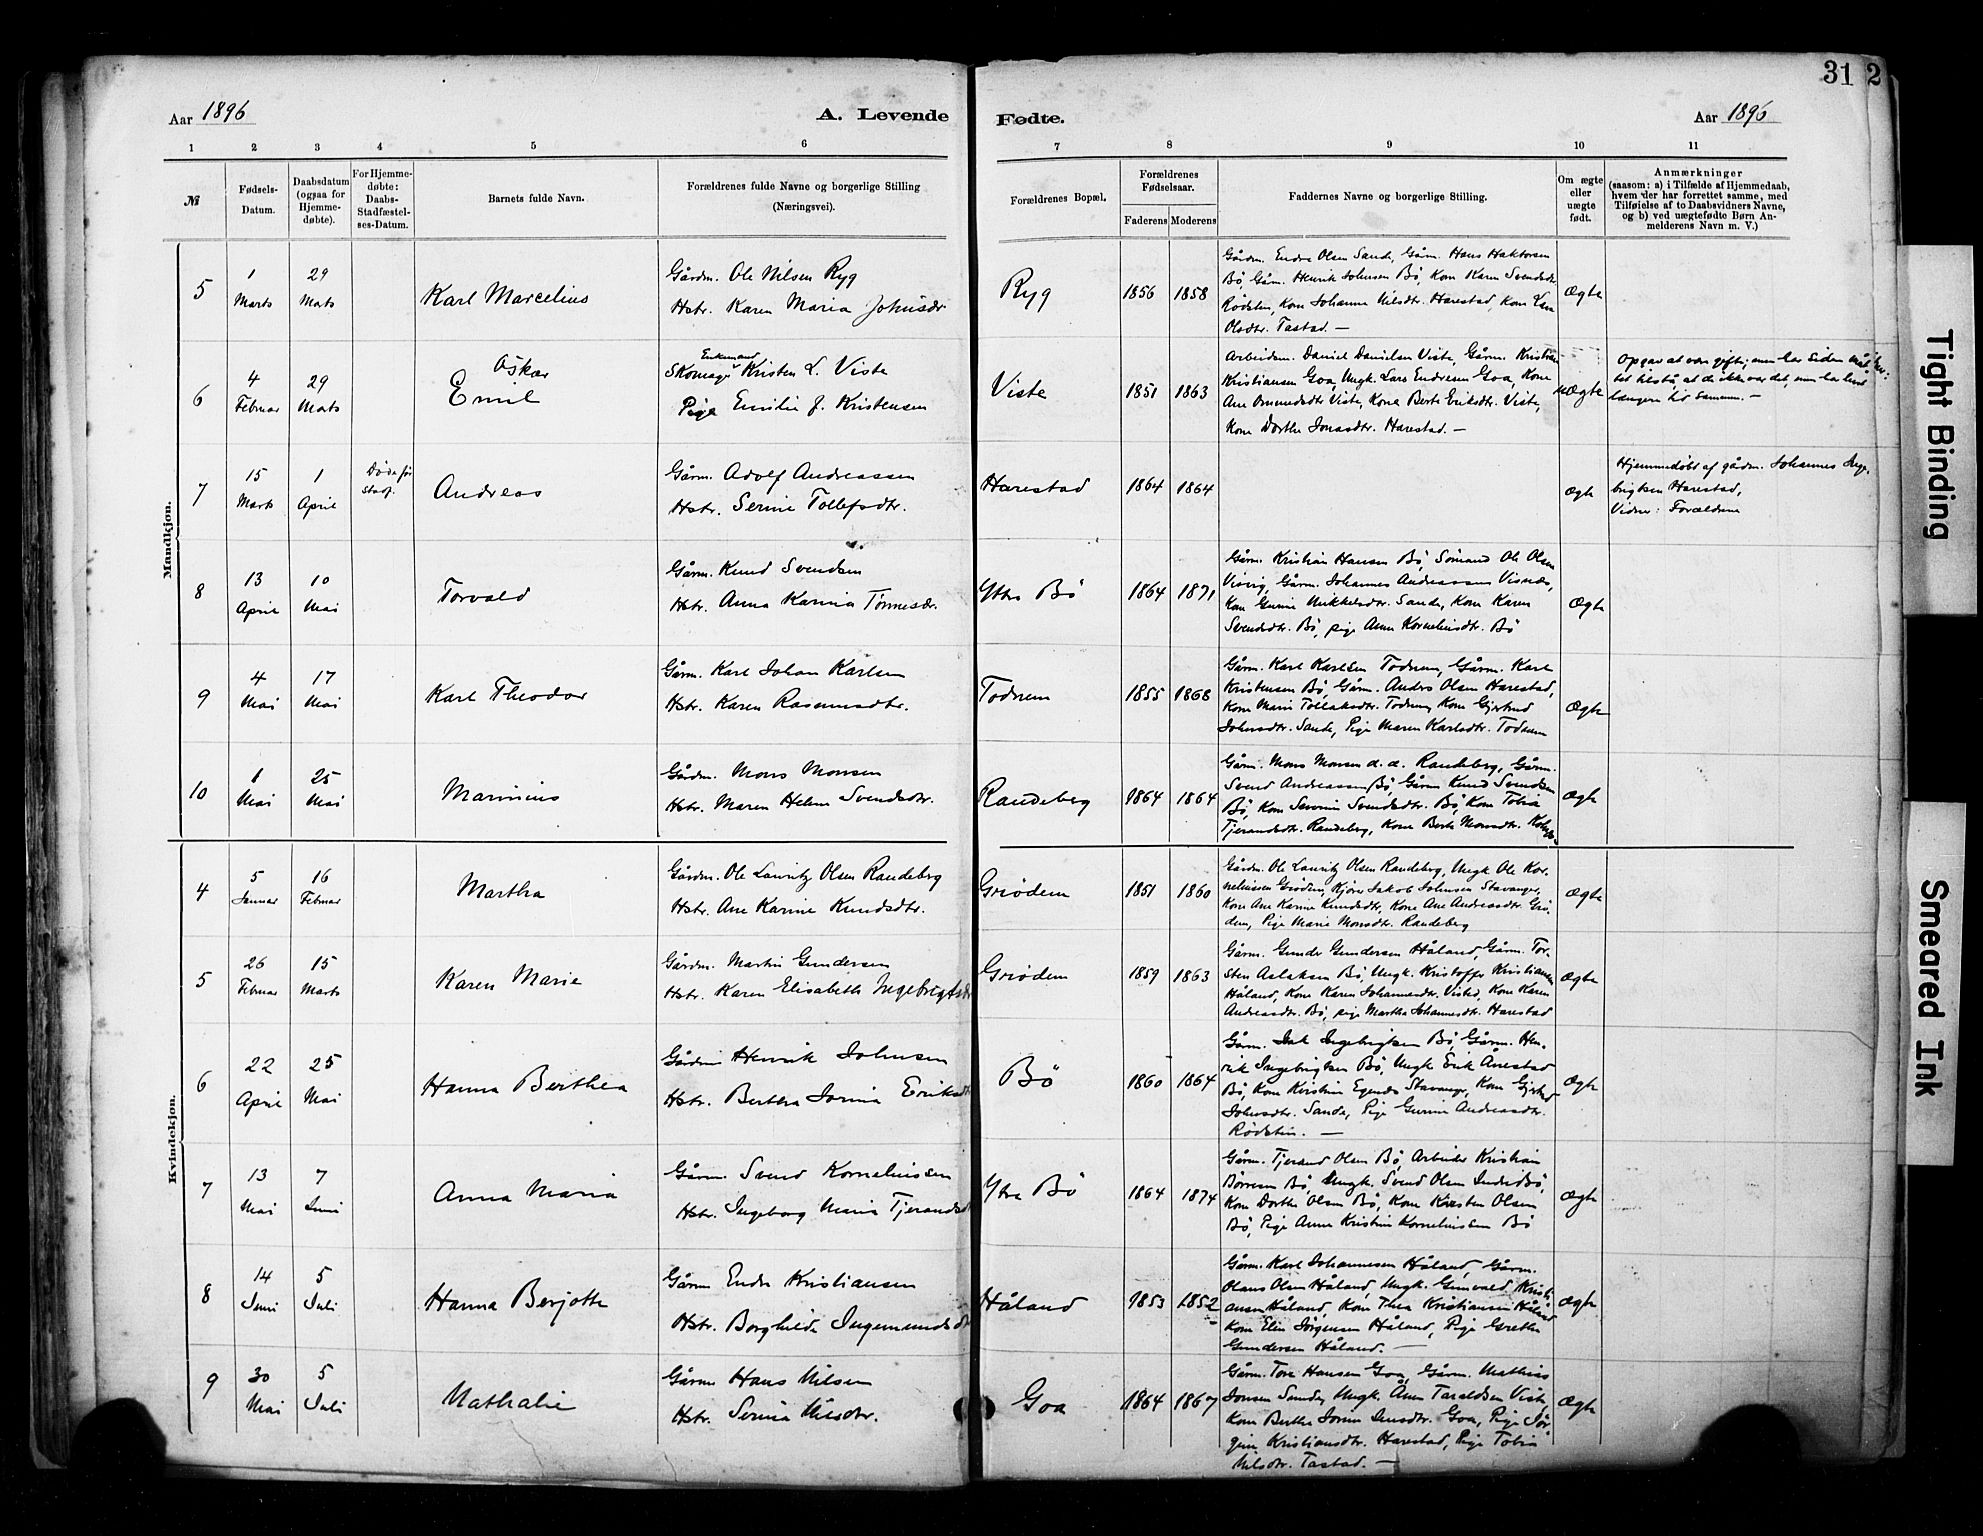 31 2
Aar 1896
A. Levende Fødte.
Aar 1896
1 2 3 4 5 6 7 8 9 10 11
№
Fødsels-Datum.
Daabsdatum (ogsaa for Hjemme-døbte).
For Hjemme-døbte: Daabs-Stadfæstel-ses-Datum.
Barnets fulde Navn.
Forældrenes fulde Navne og borgerlige Stilling
(Næringsvei).
Forældrenes Bopæl.
Forældrenes Fødselsaar.
Faderens Moderens
Faddernes Navne og borgerlige Stilling.
Om ægte eller uægte født.
Anmærkninger
(saasom: a) i Tilfælde af Hjemmedaab,
hvem der har forrettet samme, med
Tilføielse af to Daabsvidners Navne,
og b) ved uægtefødte Børn An-
melderens Navn m. V.)
Mandkjøn.
5
1 Marts
29 Mats
Karl Marcelius
Gårdm. Ole Nilsen Ryg
Hstr. Karen Maria Johnsdr
Ryg
1856 1858
Gårdm. Endre Olsen Sande, Gårm. Hans Haktorsen
Bö, Gårm. Henrik Johnsen Bö, Kone Karen Svendsdtr
Rödsten, Kone Johanne Nilsdtr. Harestad, Kone
Olsdtr. Tastad. —
Ægte
6
4 Februar
29 Marts
Oskar
Emil
Enkemand
Skomagr Kristen L. Viste
Pige Emilie J. Kristensen
Viste
1851 1863
Arbeidsm. Daniel Danielsen Viste, Gårm. Kristian
Kristiansen Goa, Ungk. Lars Endresen Goa, Kone
Ane Ommundsdtr Viste, Kone Berte Eriksdtr. Viste,
Kone Dorthe Jonasdtr. Harestad. —
uÆgte
Opgav at være gifte; men har siden måt-
tet tilstå, at de ikke var det, men har levet
længere tid sammen. —
7
15 Marts
1 April
Döde før stadf.
Andreas
Gårm. Adolf Andreassen
Hstr. Serine Tollefsdtr.
Harestad
1864 1864
ægte
Hjemmedöbt af gårdm. Johannes Inge-
brigtsen Harestad,
Vidner: Forældrene
8
13 April
10 Mai
Torvald
Gårm. Knud Svendsen
Hstr. Anna Karina Tönnesdr.
Ytre Bö
1864 1871
Gårm. Kristian Hansen Bö, Sömand Ole Olsen
Visvig, Gårm. Johannes Andreassen Visnæs,
Kone Gurine Mikkelsdtr. Sande, Kone Karen
Svendsdtr. Bö, pige Anne Korneliusdtr. Bö
Ægte
9
4 Mai
17 Mai
Karl Theodor
Gårm. Karl Johan Karlsen
Hstr. Karen Rasmusdtr.
Todnem
1855 1868
Gårm. Karl Karlsen Todnem, Gårm. Karl
Kristensen Bö, Gårm. Anders Olsen Harestad,
Kone Marie Tollaksdtr. Todnem, Kone Gjertrud
Johnsdtr. Sande, Pige Maren Karlsdtr. Todnem
Ægte
10
1 Mai
25 Mai
Marinius
Gårdm. Mons Monsen
Hstr. Maren Helene Svendsdtr.
Randeberg
1864 1864
Gårm. Mons Monsen d. æ. Randeberg, Gårm.
Svend Andreassen Bö, Gårm Knud Svendsen
Bö, Kone Severine Svendsdtr. Bö, Kone Tobia
Tjerandsdtr. Randeberg, Kone Berte Monsdtr.
Ægte
Kvindekjøn.
4
5 Januar
16 Februar
Martha
Gårdm. Ole Lauritz Olsen Randeberg
Hstr. Ane Karine Knudsdtr.
Grödem
1851 1860
Gårdm. Ole Lauritz Olsen Randeberg, Ungk Ole Kor-
neliussen Grödem, Kjörer Jakob Johnsen Stavanger,
Kone Ane Karine Knudsdtr, Kone Ane Andreasdtr. Grö-
dem, Pige Marie Monsdtr. Randeberg
Ægte
5
26 Februar
15 Marts
Karen Marie
Gårdm. Martin Gundersen
Hstr. Karen Elisabeth Ingebrigtsdr
Grödem
1859 1863
Gårm. Gunder Gundersen Håland, Gårm. Tor-
sten Aslaksen Bö, Ungk. Kristoffer Kristiansen
Håland, Kone Karen Johannesdtr. Visted, Kone Karen
Andreasdtr. Bö, pige Martha Johannesdtr. Harestad
Ægte
6
22 April
25 Mai
Hanna Berthea
Gårdm Henrik Johnsen
Hstr. Bertha Jorina Eriksdtr
Bö
1860 1864
Gårm. Ingebrigtsen Bö, Gårm. Hen-
rik Ingebrigtsen Bö, Ungk Erik Anestad
Bö, Kone Kristine Egenes Stavanger, Kone Gjertrud
Johnsdtr. Sande, Pige Gurine Andreasdtr.
Rödstin. —
Ægte
7
13 Mai
7 Juni
Anna Maria
Gårm. Svend Korneliussen
Hstr. Ingeborg Maria Tjerandsdtr
Ytre Bö
1864 1874
Gårm. Tjerand Olsen Bö, Arbeider Kristian
Börresen Bö, Ungk. Svend Olsen Indre Bö,
Kone Dorthe Olsen Bö, Kone Kirsten Olsen
Bö, Pige Anne Kristine Korneliussen Bö
Ægte
8
14 Juni
5 Juli
Hanna Berjotte
Gårm Endre Kristiansen
Hstr. Borghilde Ingemundsdtr
Håland
1853 1852
Gårm. Karl Johannesen Håland, Gårm.
Olaus Olsen Håland, Ungk. Gunvald Kristi-
ansen Håland, Kone Thea Kristiansen Håland
Kone Elen Jörgensen Håland, Pige Grethe
Gundersen Håland. —
Ægte
9
30 Mai
5 Juli
Nathalie
Gårm Hans Nilsen
Hstr. Serina Nilsdtr.
Goa
1864 1867
Gårm. Tore Hansen Goa, Gårm. Mathias
Jonsen Sande, Ungk. Ånen Taraldsen Viste,
Kone Berthe Jorine Jensdtr. Goa, Pige Jör-
gine Kristiansdtr. Harestad, Pige Tobia
Nilsdtr. Tastad. —
Ægte
Tight Binding
Smeared Ink